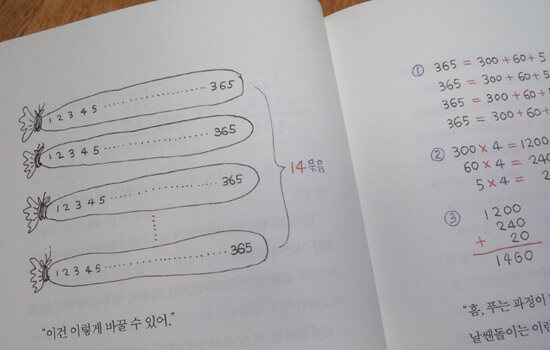 1 2 3 4 5 ............ 365
1 2 3 4 5 ............ 365
1 2 3 4 5 ............ 365
1 2 3 4 5 ............ 365
14묶음
"이건 이렇게 바꿀 수 있어."
① 365 = 300 + 60 + 5
365 = 300 + 60 + 5
365 = 300 + 60 +
365 = 300 + 60 +
② 300 × 4 = 1200
60 × 4 = 240
5 × 4 = 2
③ 1200
240
+ 20
1460
"흠, 푸는 과정이
날쌘돌이는 이런